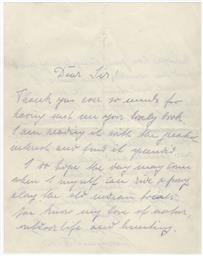 Dear Sir!
Thank you ever so much for
having sent me your lovely book
I am reading it with the greatest
interest and find it splendid.
I do hope the day may come
when I myself can ride a pony
along the old indian trails.
You know my love of nature,
outdoor life and hunting.